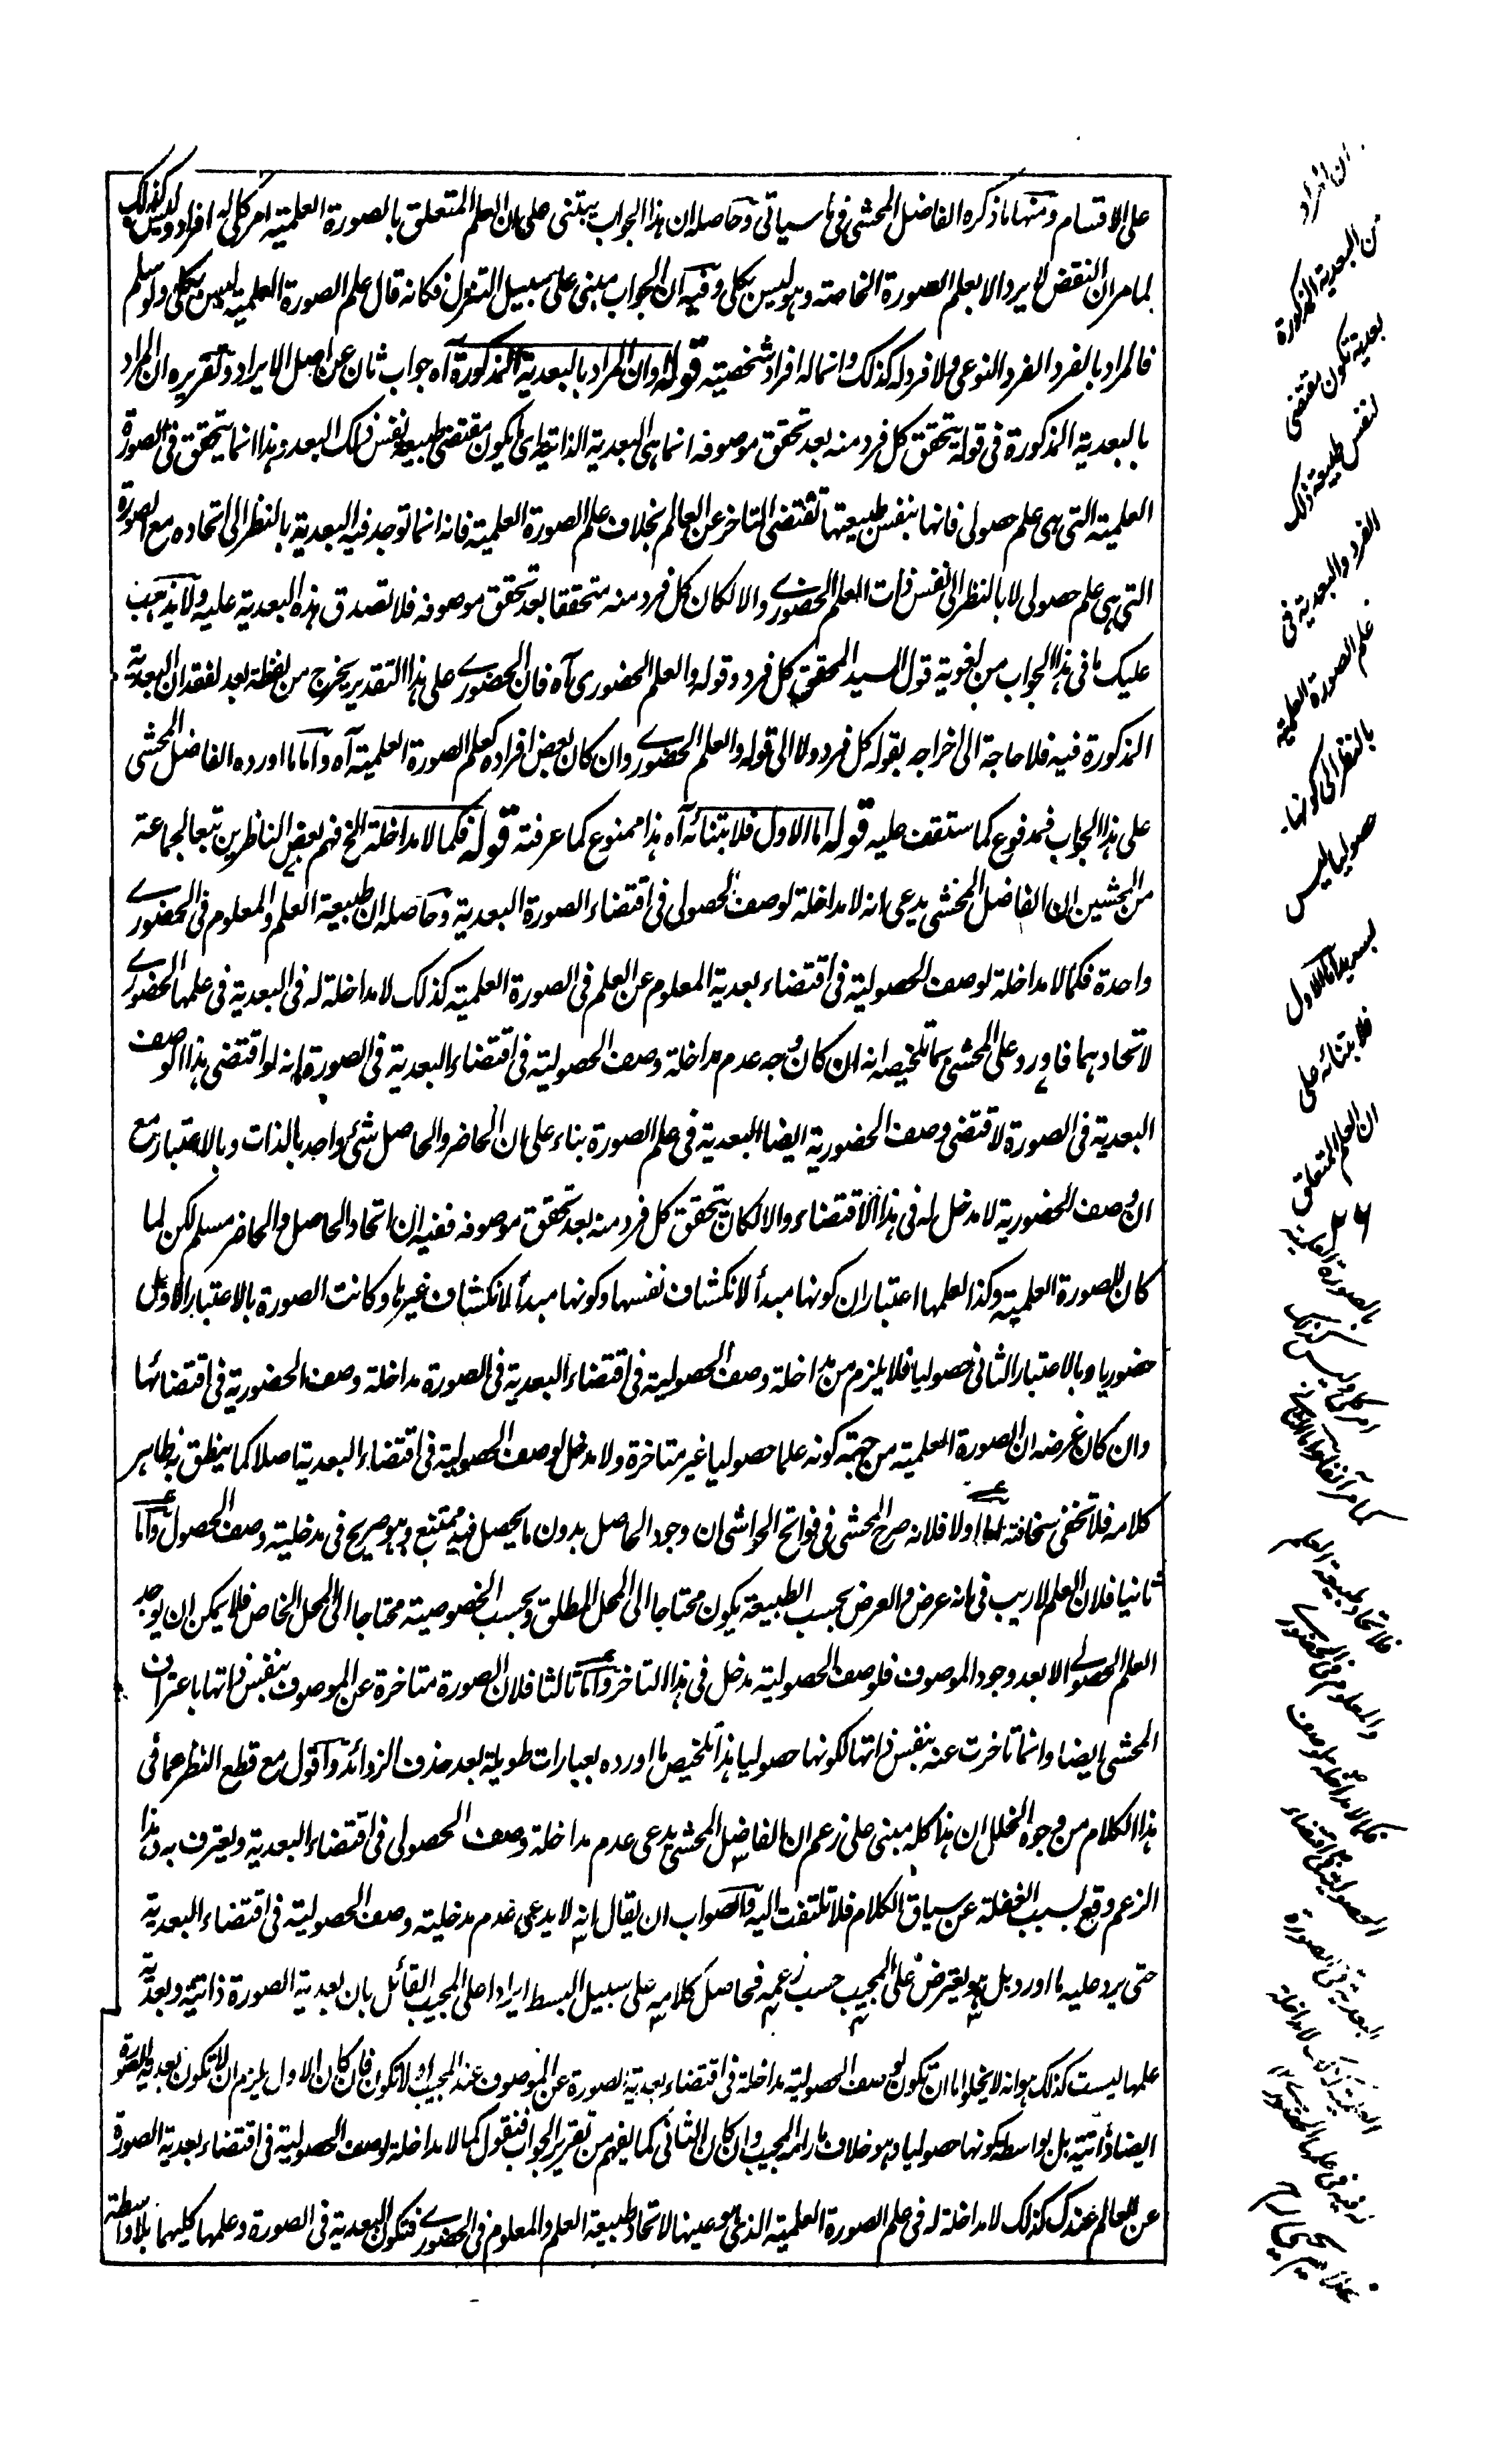 على الاقسام ومنها ما ذكره الفاضل المحشي في ما سياتي وحاصله ان هذا الجواب يبتني على ان العلم المتعلق بالصورة العلمية امر كلي له افراد وليس كذلك
لما مر ان النقض لا يرد الا بعلم الصورة الخاصة وهو ليس بكلي وفيه ان الجواب مبني على سبيل التنزل فكانه قال علم الصورة العلمية ليس بكلي ولو سلم
فالمراد بالفرد الفرد النوعي ولا فرد له كذلك وانما له افراد شخصية قوله وان المراد بالبعدية المذكورة آه جواب ثان عن اصل الايراد وتقريره ان المراد
بالبعدية المذكورة في قوله يتحقق كل فرد منه بعد تحقق موصوفه انما هي البعدية الذاتية اي ما يكون مقتضى طبيعة نفس ذلك البعد وهذا انما يتحقق في الصورة
العلمية التي هي علم حصولي فانها بنفس طبيعتها تقتضي التاخر عن العالم بخلاف علم الصورة العلمية فانه انما توجد فيه البعدية بالنظر الى اتحاده مع الصورة
التي هي علم حصولي لا بالنظر الى نفس ذات العلم الحضوري والا لكان كل فرد منه متحققا بعد تحقق موصوفه فلا تصدق هذه البعدية عليه ولا يذهب
عليك ما في هذا الجواب من لغوية قول السيد المحقق كل فرد وقوله والعلم الحضوري آه فان الحضوري على هذا التقدير يخرج من لفظة بعد لفقدان البعدية
المذكورة فيه فلا حاجة الى اخراجه بقوله كل فرد ولا الى قوله والعلم الحضوري وان كان بعض افراده كعلم الصورة العلمية آه واما ما اورده الفاضل المحشي
على هذا الجواب فمدفوع كما ستقف عليه قوله اما الاول فلابتنائه آه هذا ممنوع كما عرفته قوله فكما لا مداخلة الخ فهم بعض الناظرين تبعا لجماعة
من المحشين ان الفاضل المحشي يدعي انه لا مداخلة لوصف الحصولي في اقتضاء الصورة البعدية وحاصله ان طبيعة العلم والمعلوم في الحضوري
واحدة فكما لا مداخلة لوصف الحصولية في اقتضاء بعدية المعلوم عن العلم في الصورة العلمية كذلك لا مداخلة له في البعدية في علمها الحضوري
لاتحادهما فاورد على المحشي بما تلخيصه انه ان كان وجه عدم مداخلة وصف الحصولية في اقتضاء البعدية في الصورة انه لو اقتضى هذا الوصف
البعدية في الصورة لاقتضى وصف الحضورية ايضا البعدية في علم الصورة بناء على ان الحاضر والحاصل شئ واحد بالذات وبالاعتبار مع
ان وصف الحضورية لا مدخل له في هذا الاقتضاء والا لكان يتحقق كل فرد منه بعد تحقق موصوفه ففيه ان اتحاد الحاصل والحاضر مسلم لكن لما
كان للصورة العلمية وكذا لعلمها اعتباران كونها مبدأ لانكشاف نفسها وكونها مبدأ لانكشاف غيرها وكانت الصورة بالاعتبار الاول
حضوريا وبالاعتبار الثاني حصوليا فلا يلزم من مداخلة وصف الحصولية في اقتضاء البعدية في الصورة مداخلة وصف الحضورية في اقتضائها
وان كان غرضه ان الصورة العلمية من جهة كونه علما حصوليا غير متاخرة ولا مدخل لوصف الحصولية في اقتضاء البعدية اصلا كما ينطق به ظاهر
كلامه فلا تخفى سخافته اما اولا فلانه صرح المحشي في فواتح الحواشي ان وجود الحاصل بدون ما يحصل فيه ممتنع وهو صريح في مدخلية وصف الحصول واما
ثانيا فلان العلم لا ريب في انه عرض والعرض بحسب الطبيعة يكون محتاجا الى المحل المطلق وبحسب الخصوصية محتاجا الى المحل الخاص فلا يمكن ان يوجد
العلم الحصولي الا بعد وجود الموصوف فلوصف الحصولية مدخل في هذا التاخر واما ثالثا فلان الصورة متاخرة عن الموصوف بنفس ذاتها باعتراف
المحشي ايضا وانما تاخرت عنه بنفس ذاتها لكونها حصوليا هذا تلخيص ما اورده بعبارات طويلة بعد حذف الزوائد واقول مع قطع النظر عما في
هذا الكلام من وجوه الخلل ان هذا كله مبني على زعم ان الفاضل المحشي يدعي عدم مداخلة وصف الحصولي في اقتضاء البعدية ويعترف به وهذا
الزعم وقع بسبب الغفلة عن سياق الكلام فلا تلتفت اليه والصواب ان يقال انه لا يدعي عدم مدخلية وصف الحصولية في اقتضاء البعدية
حتى يرد عليه ما اورد بل هو يعترض على المجيب حسب زعمه فحاصل كلامه على سبيل البسط ايراد على المجيب القائل بان بعدية الصورة ذاتية وبعدية
علمها ليست كذلك هو انه لا يخلوا ما ان تكون لوصف الحصولية مداخلة في اقتضاء بعدية الصورة عن الموصوف عند المجيب او لا تكون فان كان الاول يلزم ان لا تكون بعدية الصورة
ايضا ذاتية بل بواسطة كونها حصوليا وهو خلاف ما رامه المجيب وان كان الثاني كما يفهم من تقرير الجواب فنقول كما لا مداخلة لوصف الحصولية في اقتضاء بعدية الصورة
عن العالم عندك كذلك لا مداخلة له في علم الصورة العلمية الذي هو عينها لاتحاد طبيعة العلم والمعلوم في الحضوري فتكون البعدية في الصورة وعلمها كليهما بلا واسطة
ان المراد
من البعدية المذكورة
بعدية تكون مقتضى
لنفس طبيعة ذلك
الفرد والبعدية في
علم الصورة العلمية
بالنظر الى كونها
حصوليا ليس
بسديد اما الاول
فلابتنائه على
ان العلم المتعلق
بالصورة العلمية
امر كلي وليس كذلك
كما مر آنفا واما الثاني
فلاتحاد طبيعة العلم
والمعلوم في الحضوري
فكما لا مداخلة لوصف
الحصولية في اقتضاء
البعدية في الصورة
العلمية كذلك لا مداخلة